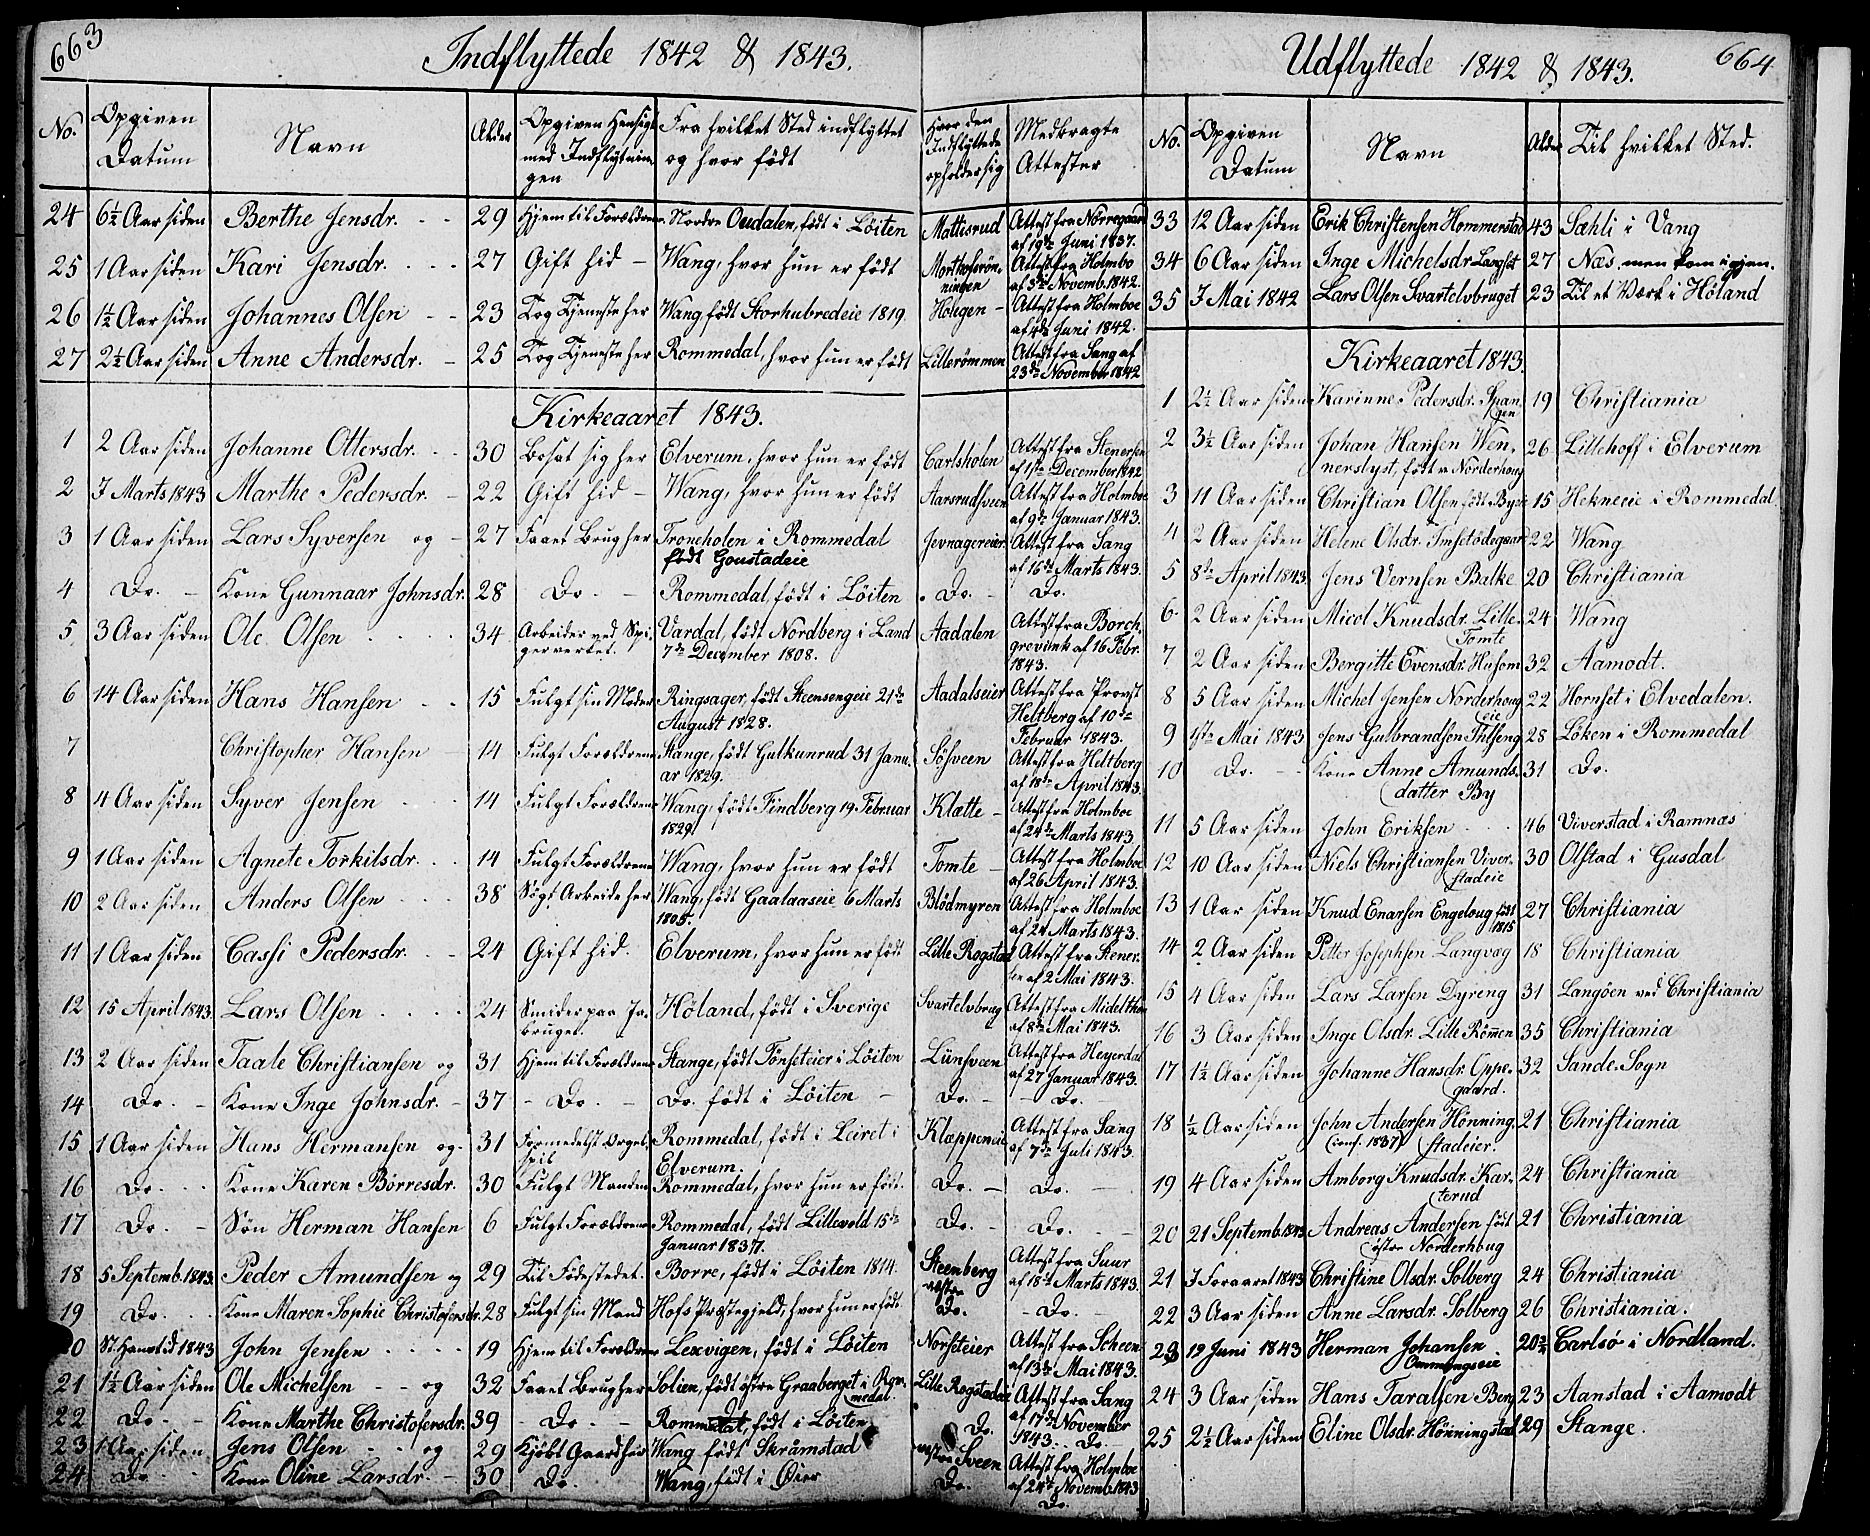 663
Indflyttede 1842 & 1843.
No. Opgiven Datum Navn Alder Opgiven Hensigt med Indflytningen Fra hvilket Sted indflyttet og hvor født Hvor den Indflyttede opholder sig Medbragte Attester
24 6½ Aar siden Berthe Jensdr. 29 Hjem til Forældrene Nordre Oudalen, født i Löiten Mattisrud Attest fra Nörregaard af 19de Juni 1837.
25 1 Aar siden Kari Jensdr. 27 Gift hid - Wang, hvor hun er født Attest fra Holmbo af 3de Novemb. 1842.
26 1½ Aar siden Johannes Olsen 23 Tog Tjeneste her Wang, født Storhubredeie 1819 Attest fra Holmboe af 4de Juni 1842.
27 2½ Aar siden Anne Andersdr. 25 Tog Tjeneste her Rommedal, hvor hun er født Lillerömmen Attest fra Sang af 23de November 1842
Kirkeaaret 1843.
1 2 Aar siden Johanne Ottersdr. 30 Bosat sig her Elverum, hvor hun er født Carlsholen Attest fra Stenersen af 11te December 1842
2 7 Marts 1843 Marthe Pedersdr. 22 Gift hid - Wang, hvor hun er født Aarsrudsveen Attest fra Holmboe af 9de Januar 1843.
3 1 Aar siden Lars Syversen og 27 Faaet Brug her Troneholen i Rommedal født Goustadeie Jevnagereier Attest fra Sang af 16de Marts 1843.
4 Do. Kone Gunnaar Johnsdr. 28 Do. Rommedal, født i Löiten Do. Do.
5 3 Aar siden Ole Olsen 34 Arbeider ved Spigerverket. Vardal, født Nordberg i Land 7de December 1808. Aadalen Attest fra Borchgrevink af 16 Febr. 1843.
6 14 Aar siden Hans Hansen 15 Fulgt sin Moder Ringsager, født Steensengeie 21de August 1828. Aadalseier Attest fra Provst Heltberg af 10de Februar 1843.
7 Christopher Hansen 14 Fulgt Forældrene Stange, født Gulkunrud 31 Januar 1829. Sösveen Attest fra Heltberg af 18de April 1843.
8 4 Aar siden Syver Jensen 14 Fulgt Forældrene Wang, født Findberg 19 Februar 1829 Klætte - Attest fra Holmboe af 24de Marts 1843
9 1 Aar siden Agnete Torkilsdr. 14 Fulgt Forældrene Wang, hvor hun er født Tomte - Attest fra Holmboe af 26 April 1843.
10 2 Aar siden Anders Olsen 38 Sögt Arbeide her Wang, født Gaalaaseie 6 Marts 1805. Blödmyren Attest fra Holmboe af 24 Marts 1843.
11 1 Aar siden Cassi Pedersdr. 24 Gift hid. Elverum, hvor hun er født Lille Rogstad Attest fra Stenersen af 2 Mai 1843.
12 15 April 1843 Lars Olsen 24 Smider paa Jabruget. Höland, født i Sverige Svartelvbrug Attest fra Midelthon af 8de Mai 1843.
13 2 Aar siden Taale Christiansen og 31 Hjem til Forældrene Stange, født Tönseteier i Löiten Lunsveen Attest fra Heyerdal af 27 Januar 1843.
14 Do. - Kone Inge Johnsdr. 37 - Do. - Do. født i Löiten - Do. - - Do. -
15 1 Aar siden Hans Hermansen og 31 Formedelst Orgelspil Rommedal, født i Leiret i Elverum. Klæppeneie Attest fra Sang af 7de Juli 1843.
16 Do. - Kone Karen Börresdr. 30 Fulgt Manden Rommedal, hvor hun er født. Do. - Do. -
17 Do. - Sön Herman Hansen 6 Fulgt Forældrene Rommedal, født Lillevold 15de Januar 1837. Do. - Do. -
18 5 Septemb. 1843. Peder Amundsen og 29 Til Födestedet. Borre, født i Löiten 1814. Steenberg vestre Attest fra Suur af 18de Marts 1843.
19 Do. Kone Maren Sophie Christofersdr. 28 Fulgt sin Mand Hofs Præstegjeld, hvor hun er født Do. - Do.
20 St. Hanstid 1843 John Jensen 19 Hjem til Forældrene Lexvigen, født i Löiten Norseteier Attest fra Scheen af 13de Mai 1843.
21 1½ Aar siden Ole Michelsen og 32 Faaet Brug her Solien, født östre Graaberget i Rommedal Lille Rogstadeie Attest fra Sang af 17de November 1843.
22 Do. - Kone Marthe Christofersdr. 39 - Do. - Rommedal, født i Löiten Do. Do.
23 1 Aar siden Jens Olsen og 29 Kjöbt Gaard her Wang født Skråmstad vestre Sveen Attest fra Holmboe af 24de Novemb. 1843
24 Do. Kone Oline Larsdr. 30 Do. Wang, født i Öier Do. Do.
664
Udflyttede 1842 & 1843.
No. Opgiven Datum Navn Alder Til hvilket Sted.
33 12 Aar siden Erik Christensen Hommerstad 43 Sæhli i Vang
34 6 Aar siden Inge Michelsdr Langset 27 Næs, men kom igjen.
35 7 Mai 1842 Lars Olsen Svartelvbruget 23 Til et Værk i Höland
Kirkeaaret 1843.
1 2½ Aar siden Karinne Pedersdr. Spangen 19 Christiania
2 3½ Aar siden Johan Hansen Wennerslyst, født v. Norderhoug 26 Lillehoff i Elverum
3 11 Aar siden Christian Olsen født Bye 15 Hekneeie i Rommedal
4 2 Aar siden Helene Olsdr. Imsetödegaard 22 Wang
5 8de April 1843 Jens Vernsen Balke 20 Christiania
6 2 Aar siden Micol Knudsdr. Lille Tomte 24 Wang
7 2 Aar siden Bergitte Evensdr. Husom 32 Aamodt.
8 5 Aar siden Michel Jensen Norderhougeie 22 Hornset i Elvedalen.
9 1ste Mai 1843 Jens Gulbrandsen Thlseng 28 Löken i Rommedal
10 Do. - Kone Anne Amundsdatter By 31 Do.
11 5 Aar siden John Eriksen 46 Viverstad i Ramnæs
12 10 Aar siden Niels Christiansen Viverstadeie 30 Olstad i Gusdal
13 1 Aar siden Knud Enarsen Engeloug født 1815 27 Christiania
14 2 Aar siden Petter Josephsen Langvag 18 Christiania
15 4 Aar siden Lars Larsen Dyreng 31 Langöen ved Christiania
16 3 Aar siden Inge Olsdr. Lille Römen 35 Christiania
17 1½ Aar siden Johanne Hansdr. Oppegaard. 32 Sande Sogn
18 ½ Aar siden John Andersen Hönningstadeier. (conf. 1837) 21 Christiania
19 4 Aar siden Amborg Knudsdr. Karterud 24 Christiania
20 21 Septemb. 1843 Andreas Andersen født östre Norderhoug 21 Christiania
21 I Foraaret 1843 Christine Olsdr. Solberg 24 Christiania
22 3 Aar siden Anne Larsdr. Solberg 26 Christiania.
23 19 Juni 1843 Herman Johansen 20¾ Carlsö i Nordland.
24 3 Aar siden Hans Taralsen Berg 23 Aanstad i Aamodt
25 2½ Aar siden Eline Olsdr. Hönningstad 29 Stange.